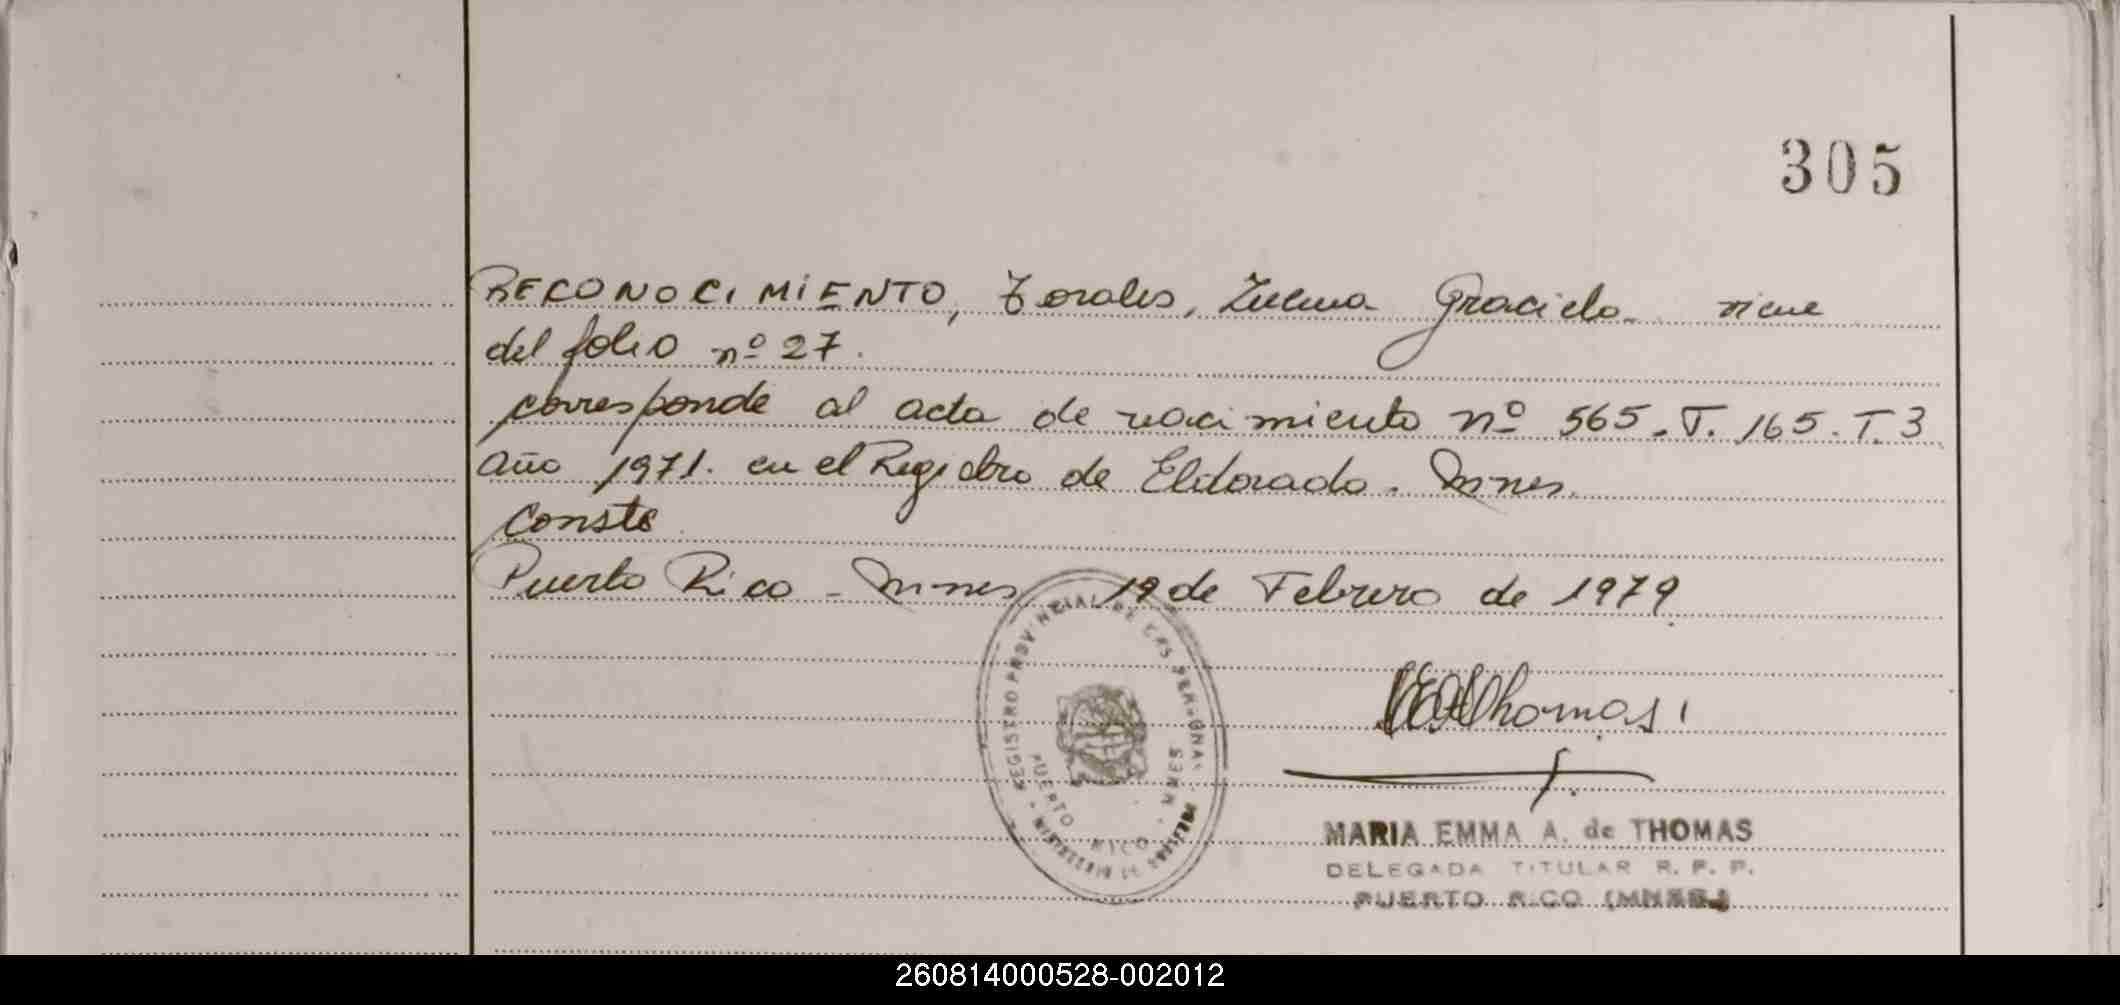 305
RECONOCIMIENTO, Torales, Zulma Graciela. viene
del folio nº 27.
corresponde al acta de nacimiento nº 565. T. 165. T. 3
Año 1971. en el Registro de Eldorado. Mnes.
Conste
Puerto Rico - Mnes 19 de Febrero de 1979
REGISTRO PROVINCIAL DE LAS PERSONAS
PUERTO RICO - MNES
METhomas
MARIA EMMA A. de THOMAS
DELEGADA TITULAR R. P. P.
PUERTO RICO (MNES.)
260814000528-002012